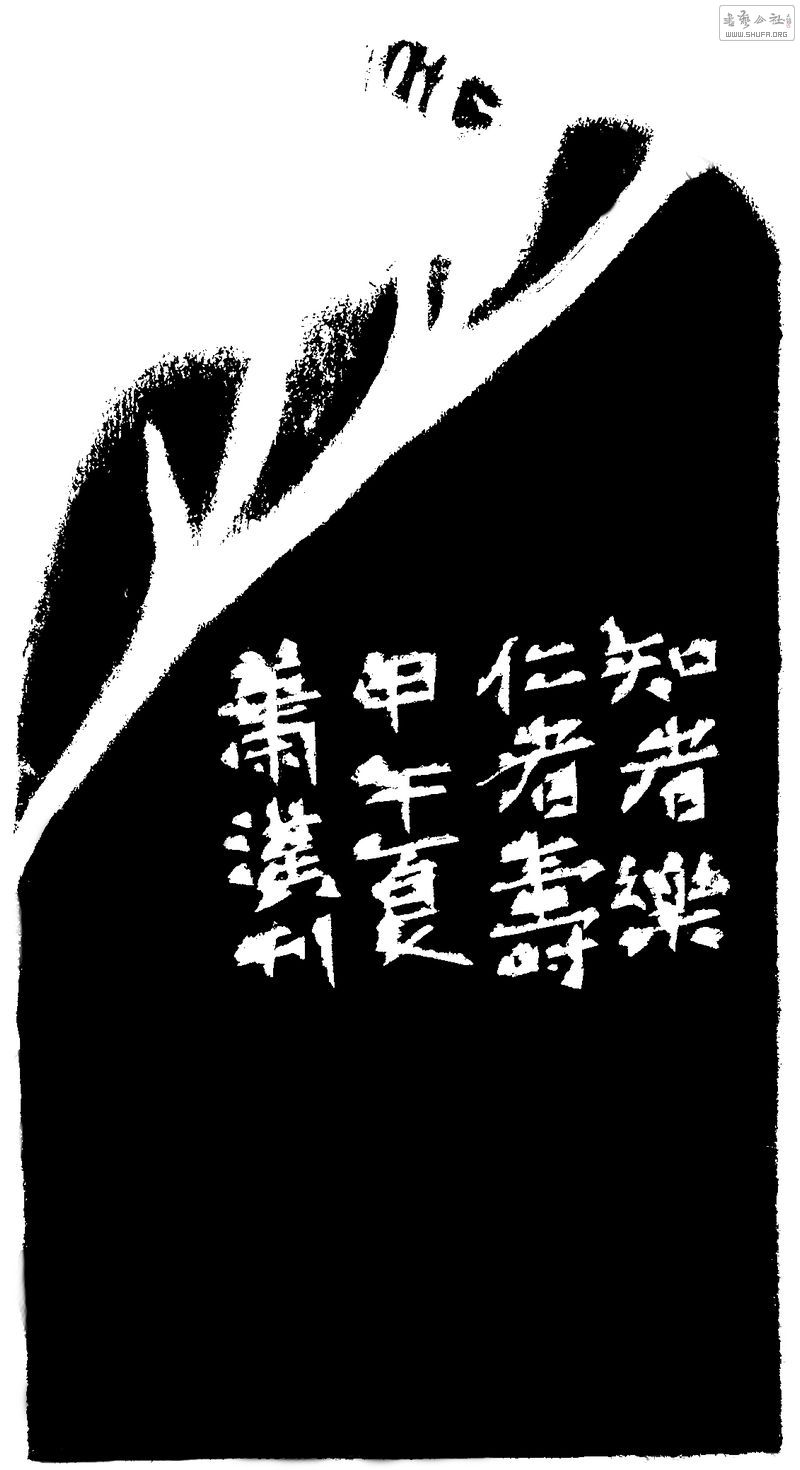 知者樂
仁者壽
甲午夏
蕭漢刊
书艺公社
WWW.SHUFA.ORG